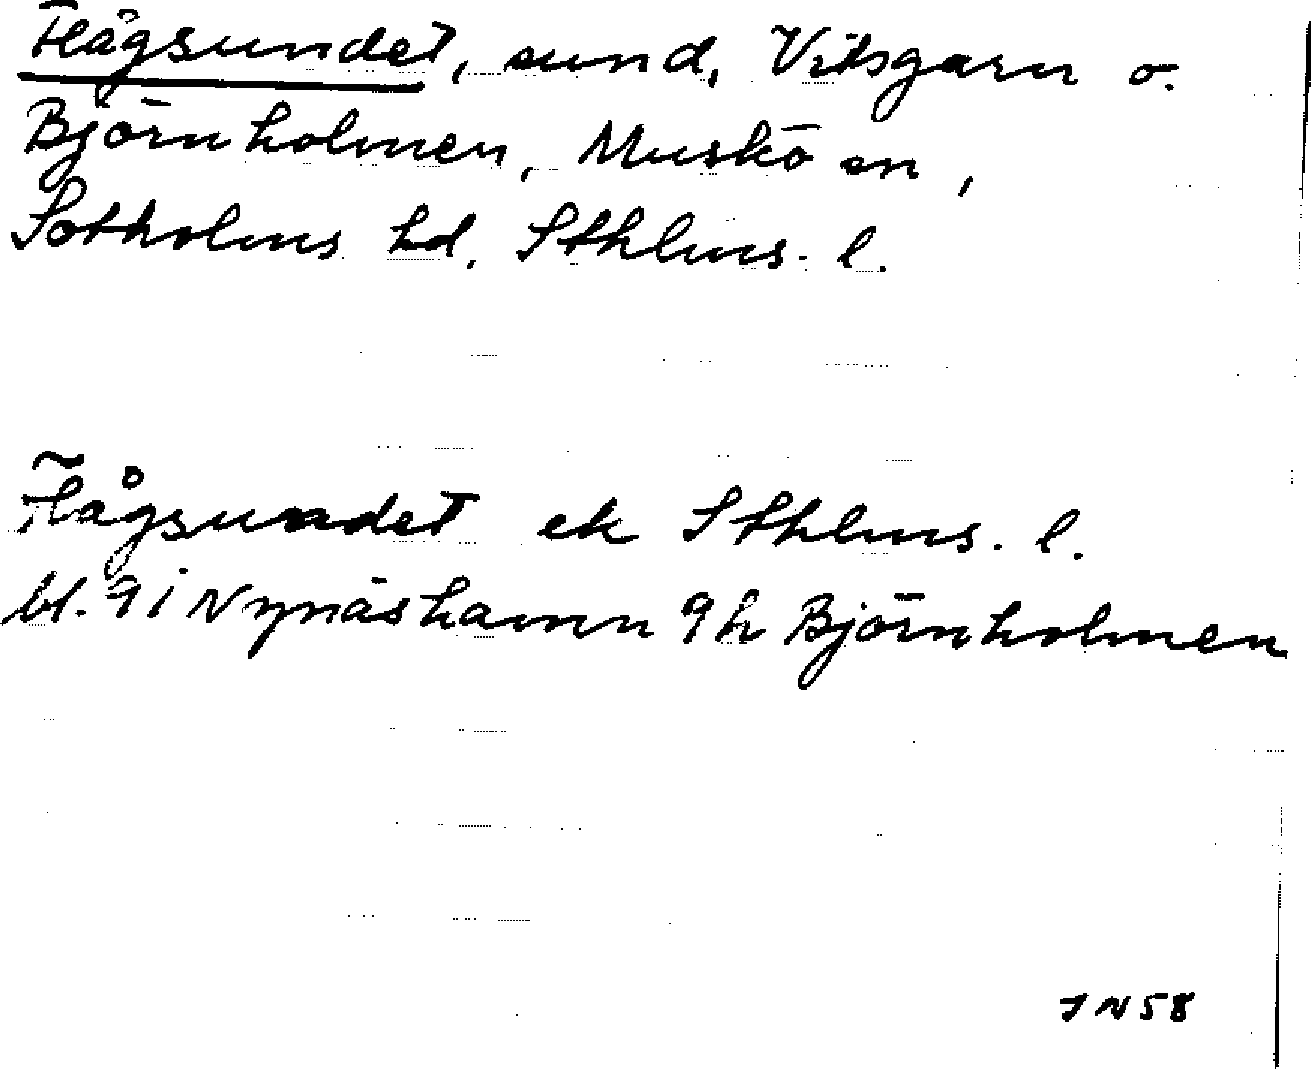 Flågsundet, sund, Vitsgarn o.
Björnholmen, Muskö sn,
Sotholms hd, Sthlms. l.
Flågsundet ek Sthlms. l.
bl. 9 i Nynäshamn 9h Björnholmen
JN58